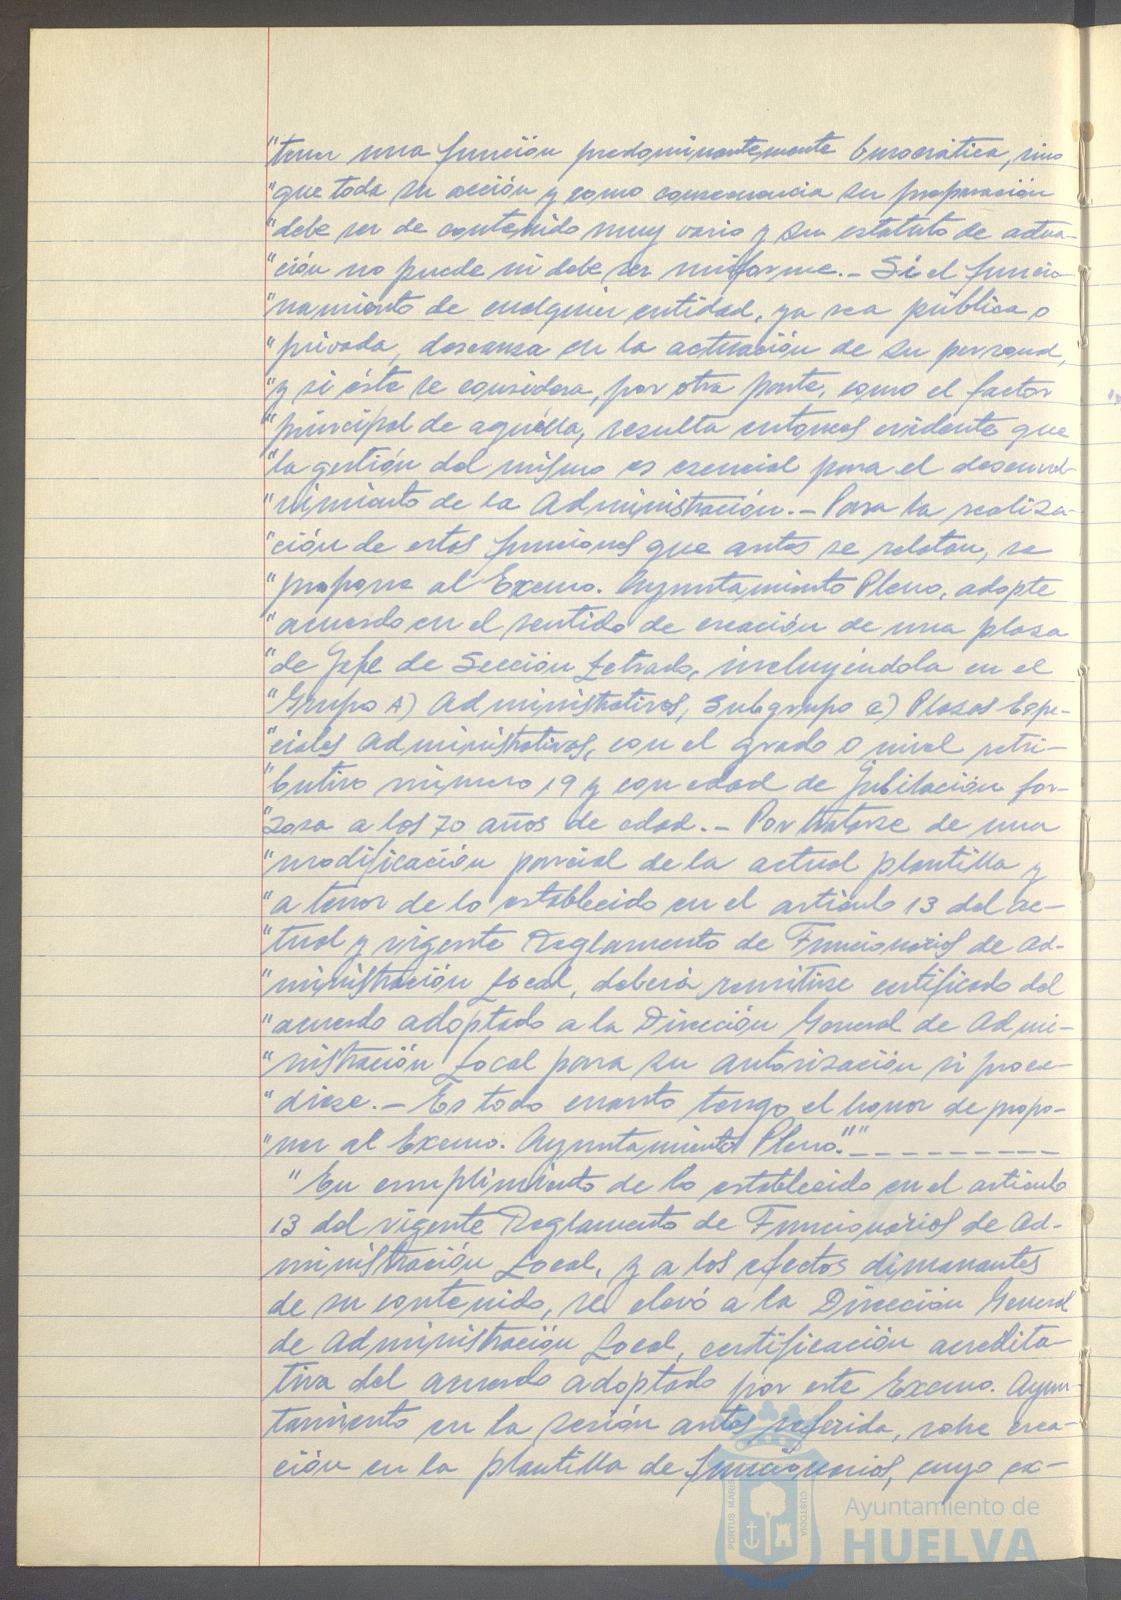 "tener una función predominantemente burocrática, sino
"que toda su acción y como consecuencia su preparación
"debe ser de contenido muy vario y su estatuto de actua-
"ción no puede ni debe ser uniforme.- Si el funcio-
"namiento de cualquier entidad, ya sea pública o
"privada, descansa en la actuación de su personal,
"y si éste se considera, por otra parte, como el factor
"principal de aquélla, resulta entonces evidente que
"la gestión del mismo es esencial para el desenvol-
"vimiento de la Administración.- Para la realiza-
"ción de estas funciones que antes se relatan, se
"propone al Excmo. Ayuntamiento Pleno, adopte
"acuerdo en el sentido de creación de una plaza
"de Jefe de Sección Letrado, incluyéndola en el
"Grupo A) Administrativos, Subgrupo c) Plazas Espe-
"ciales Administrativas, con el grado o nivel retri-
"butivo número 19 y con edad de jubilación for-
"zosa a los 70 años de edad.- Por tratarse de una
"modificación parcial de la actual plantilla y
"a tenor de lo establecido en el artículo 13 del ac-
"tual y vigente Reglamento de Funcionarios de Ad-
"ministración Local, deberá remitirse certificado del
"acuerdo adoptado a la Dirección General de Admi-
"nistración Local para su autorización si proce-
"diese.- Es todo cuanto tengo el honor de propo-
"ner al Excmo. Ayuntamiento Pleno."" - - - - - - - - -
"En cumplimiento de lo establecido en el artículo
13 del vigente Reglamento de Funcionarios de Ad-
ministración Local, y a los efectos dimanantes
de su contenido, se elevó a la Dirección General
de Administración Local, certificación acredita-
tiva del acuerdo adoptado por este Excmo. Ayun-
tamiento en la sesión antes referida, sobre crea-
ción en la plantilla de funcionarios, cuyo ex-
PORTUS MARIS
CUSTODIA
Ayuntamiento de
HUELVA